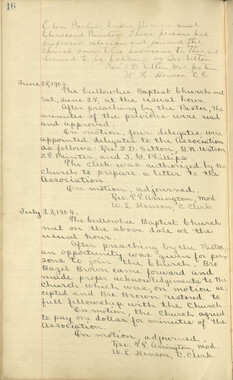 16
Cleveland
professed religion and joined the
church
demed to be
Rev. J. D. Sitton, Mod. pro tem
W. E. Henson C.C.
June 28, 1904.
The Cullowhee Baptist Church met
Sat, June 25, at the usual hour.
After preaching by the Pastor, the
minutes of the previous were read
and approved.
On motion, four delegates were
appointed delegates to the Association
as follows: Rev. J. D. Sitton, B. R. Wilson
J. P. Painter, and J. M. Phillips.
The clerk was authorized by the
Church to prepare a letter to the
Association
On motion, adjourned.
Rev. P. P. Arrington, Mod.
W. E. Henson, C. Clerk
July 23, 1904.
The Cullowhee Baptist Church
met on the above date at the
usual hour.
After preaching by the Pastor
an opportunity was given for per
sons to join the church; Bro
Hazel Brown came forward and
made proper acknowledgments to the
Church which was, on motion ac
cepted and Bro Brown restored to
full fellowship with the Church
On motion, the Church agreed
to pay one dollar for minutes of the
Association.
On motion, adjourned
Rev. P. P. Arrington, Mod.
W. E. Henson, C. Clerk